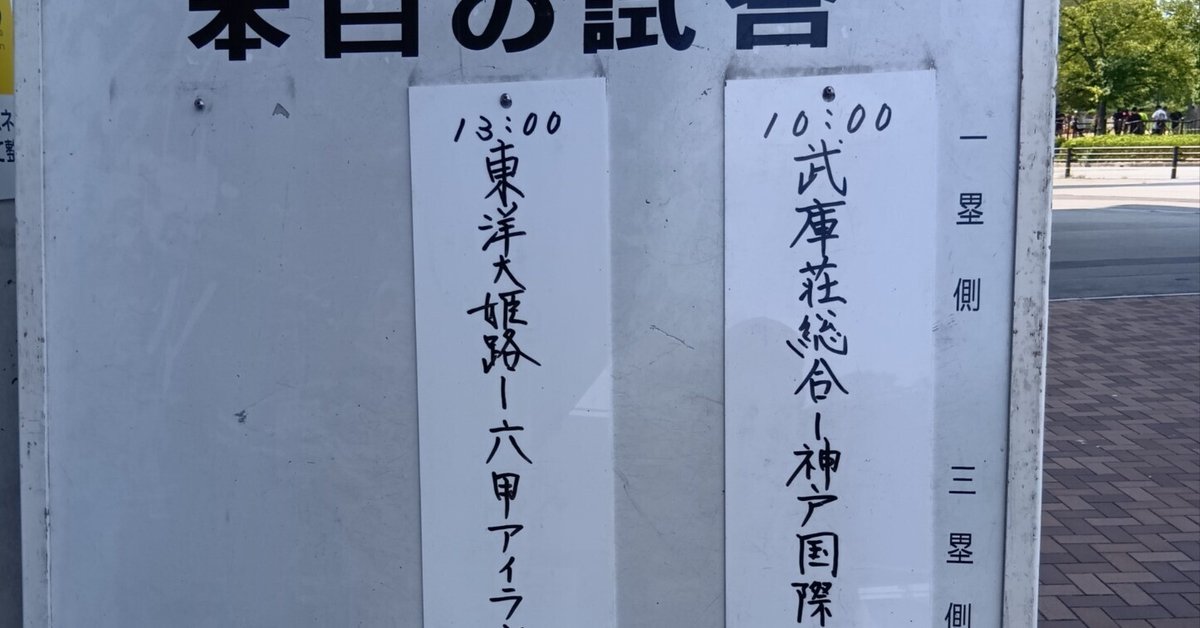 本日の試合
一塁側
三塁側
10:00
武庫荘総合ー神戸国際
13:00
東洋大姫路ー六甲アイラ